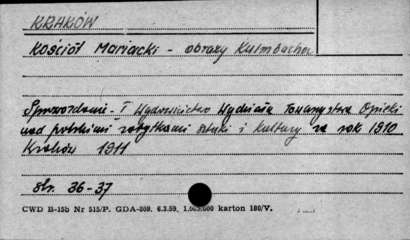 KRAKÓW
Kościół Mariacki - obrazy Kulmbacha
Sprawozdanie i Wydawnictwo Wydziału Towarzystwa Opieki
nad polskimi zabytkami sztuki i kultury za rok 1910
Kraków 1911
str. 36-37
CWD B-15b Nr 515/P. GDA-809. 6.3.59. 1.000.000 karton 180/V.